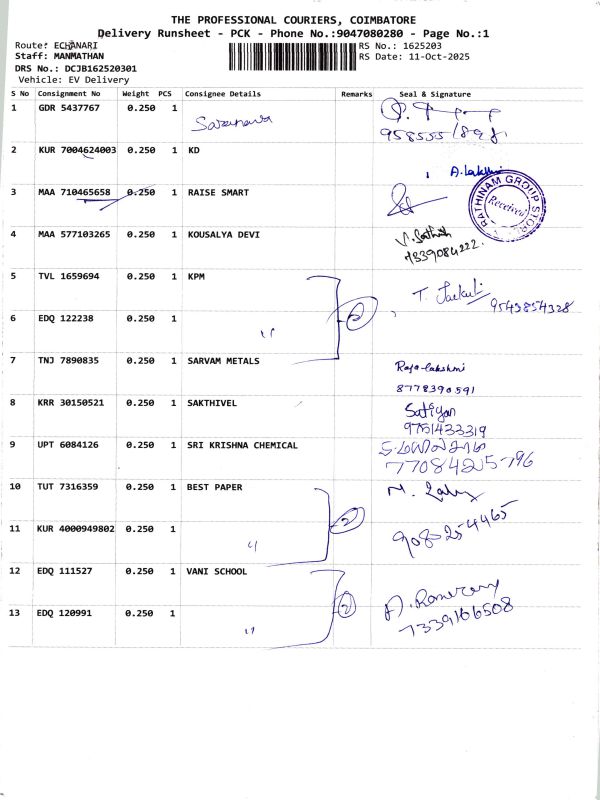 THE PROFESSIONAL COURIERS, COIMBATORE
Delivery Runsheet - PCK - Phone No.:9047080280 - Page No.:1
Route: ECHANARI
RS No.: 1625203
Staff: MANMATHAN
RS Date: 11-Oct-2025
DRS No.: DCJB162520301
Vehicle: EV Delivery
S No Consignment No Weight PCS Consignee Details Remarks Seal & Signature
1 GDR 5437767 0.250 1
2 KUR 7004624003 0.250 1 KD A. Lakshmi
3 MAA 710465658 0.250 1 RAISE SMART
RATHINAM GROUP STORE
Received
4 MAA 577103265 0.250 1 KOUSALYA DEVI V. Sathish
7339084222.
5 TVL 1659694 0.250 1 KPM
9543854328
6 EDQ 122238 0.250 1 " 2
7 TNJ 7890835 0.250 1 SARVAM METALS Raja lakshmi
8778390591
8 KRR 30150521 0.250 1 SAKTHIVEL Satiyan
9751433319
9 UPT 6084126 0.250 1 SRI KRISHNA CHEMICAL
7708425796
10 TUT 7316359 0.250 1 BEST PAPER
11 KUR 4000949802 0.250 1 " 2
12 EDQ 111527 0.250 1 VANI SCHOOL
13 EDQ 120991 0.250 1 " 2
7339166508